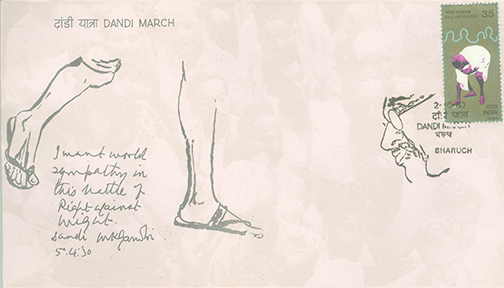 दांडी यात्रा DANDI MARCH
35
SALT SATYAGRAH
INDIA
DANDI MARCH
BHARUCH
I want world
sympathy in
this battle of
Right against
Might.
Dandi MKGandhi
5.4.30